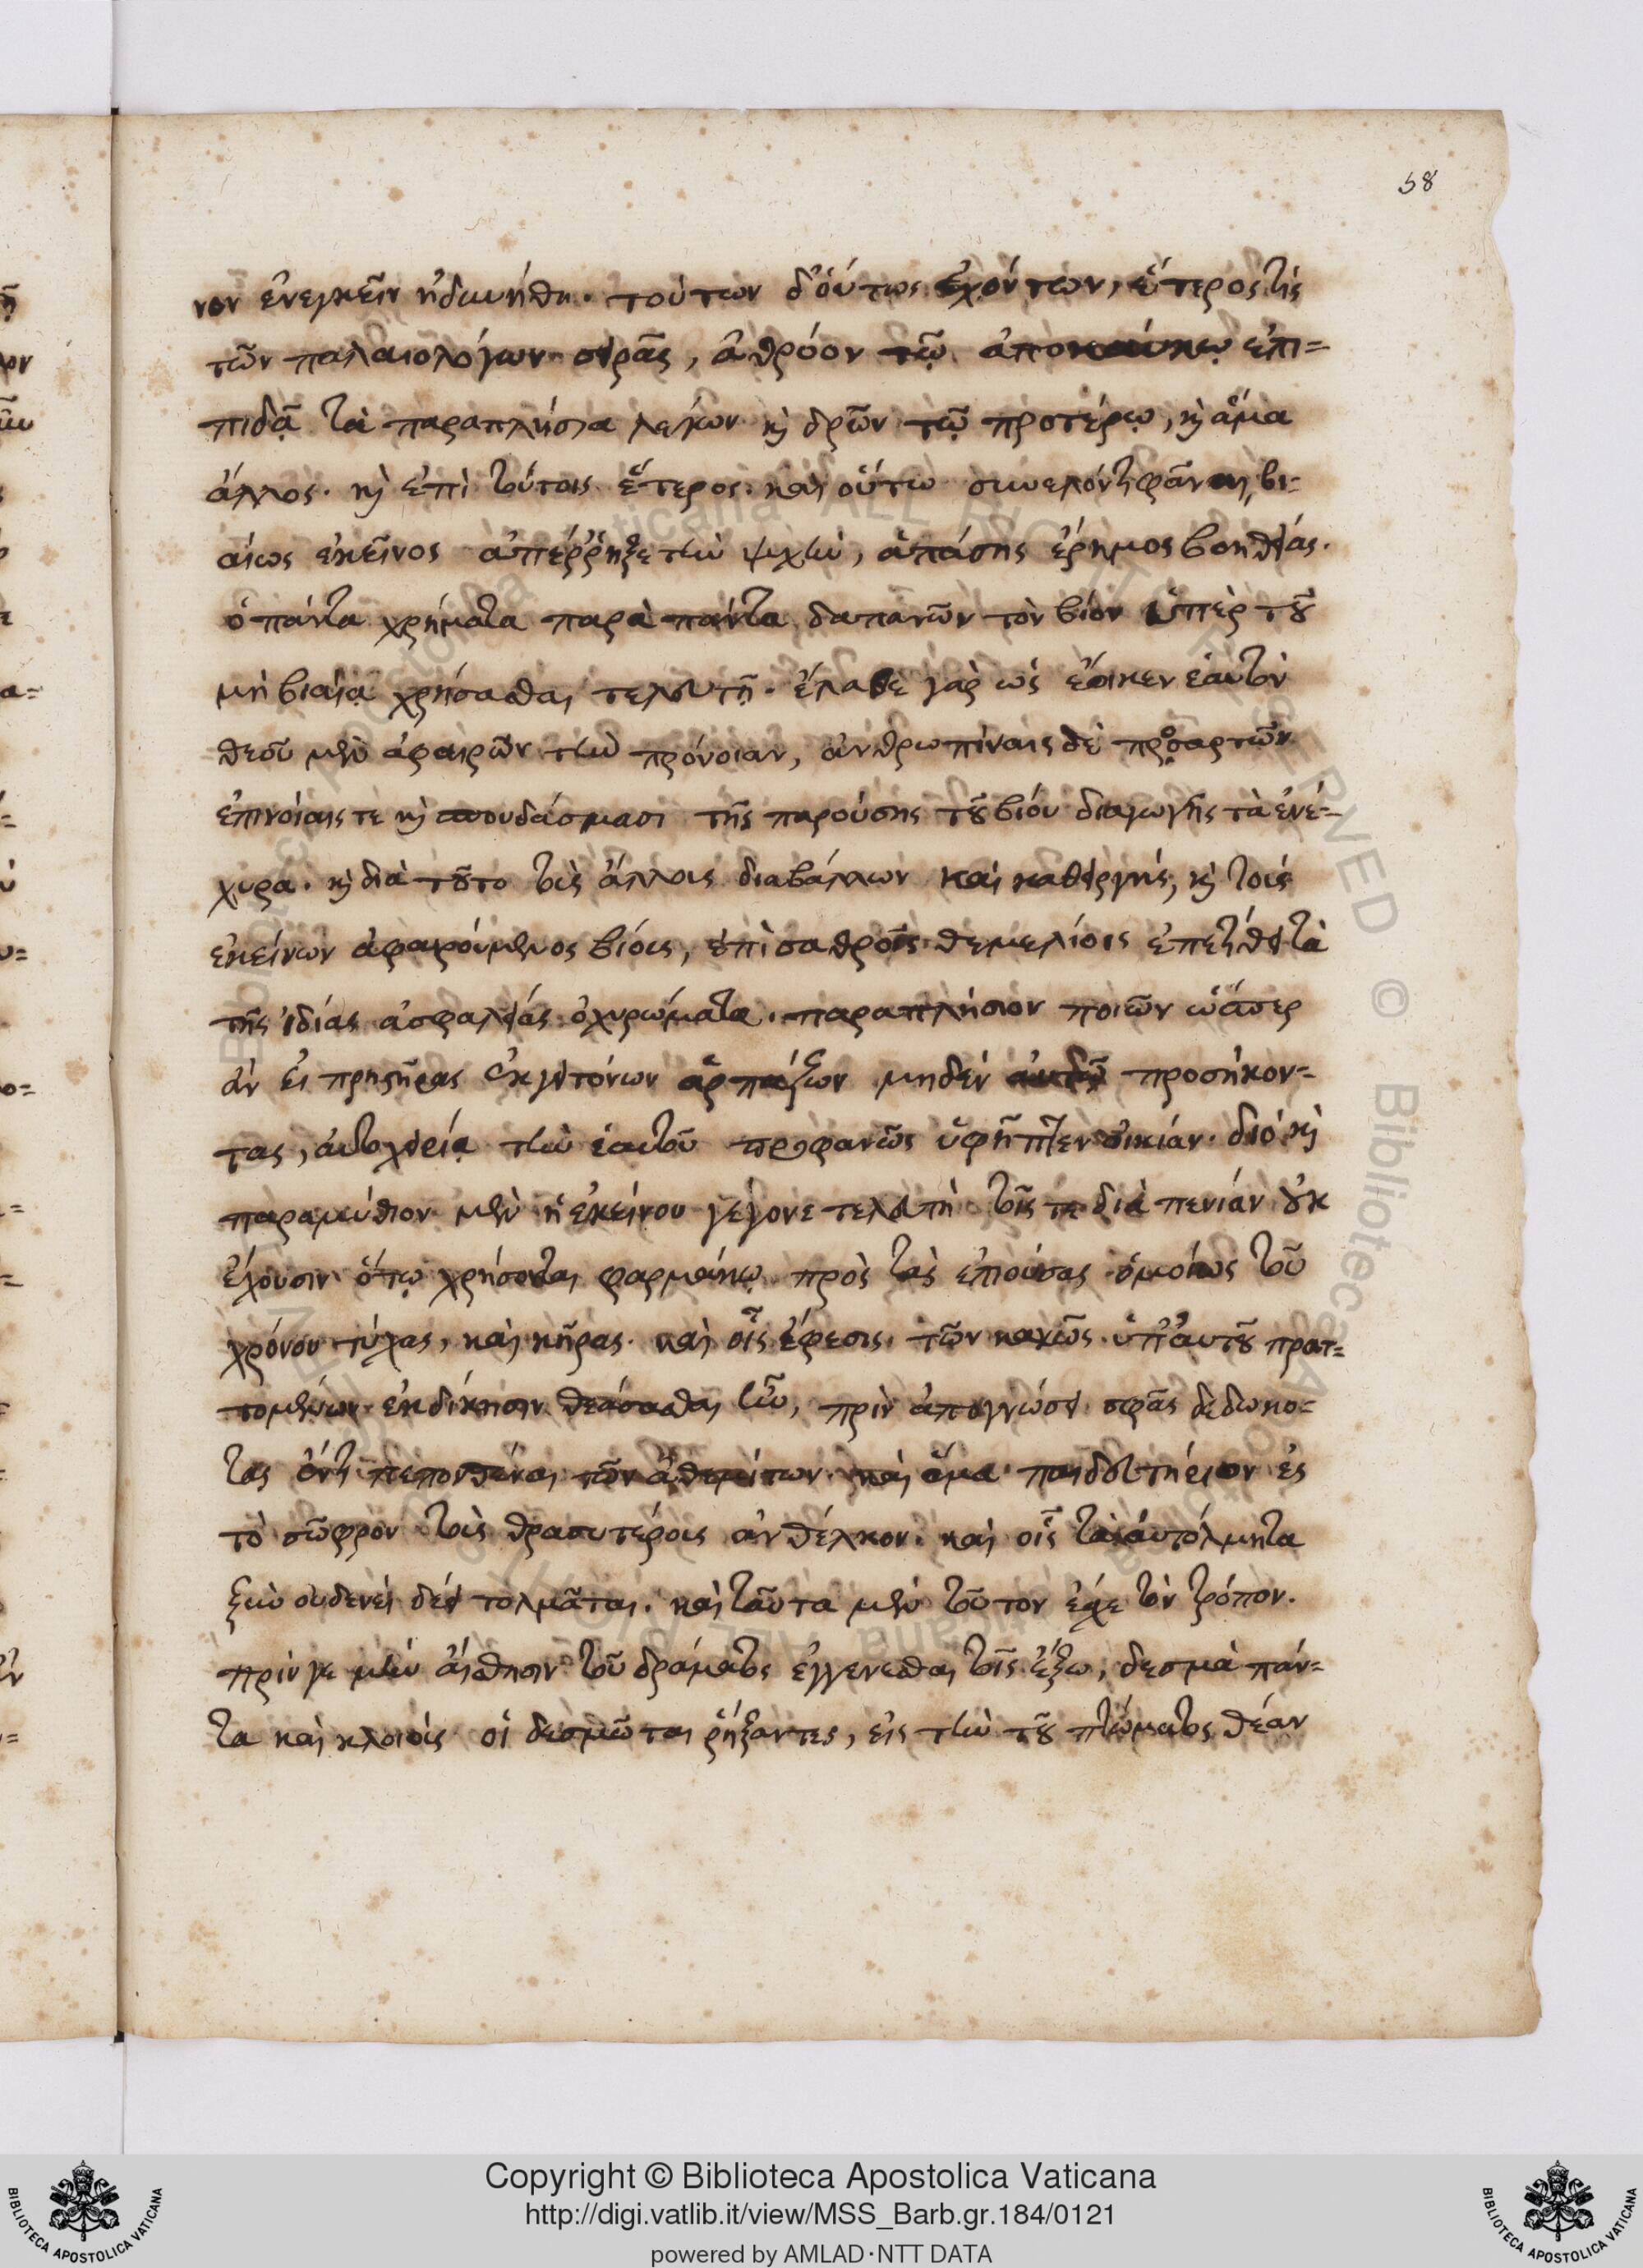 58
νον ἐνεγκεῖν ἠδυνήθη. τούτων δ' οὕτως ἐχόντων, ἕτερός τις
τῶν παλαιολόγων σειρᾶς, ἀθρόον τῷ ἀποκαύκῳ ἐπι=
πιδᾷ τὰ παραπλήσια λέγων κὶ δρῶν τῷ προτέρῳ, κὶ ἅμα
ἄλλος. κὶ ἐπὶ τούτοις ἕτερος. καὶ οὕτω συνελόντι φάναι, βι=
αίως ἐκεῖνος ἀπέῤῥηξε τὴν ψυχὴν, ἁπάσης ἔρημος βοηθείας.
ὁ πάντα χρήματα παρὰ πάντα δαπανῶν τὸν βίον ὑπὲρ τοῦ
μὴ βιαίᾳ χρήσασθαι τελευτῇ. ἔλαθε γὰρ ὡς ἔοικεν ἑαυτὸν
θεοῦ μὲν ἀφαιρῶν τὴν πρόνοιαν, ἀνθρωπίναις δὲ προσαρτῶν
ἐπινοίαις τε κὶ σπουδάσμασι τῆς παρούσης τοῦ βίου διαγωγῆς τὰ ἐνέ=
χυρα. κὶ διὰ τοῦτο τοὺς ἄλλους διαβάλλων καὶ καθειργνὺς, κὶ τοὺς
ἐκείνων ἀφαιρούμενος βίους, ἐπὶ σαθροῖς θεμελίοις ἐπετίθει τὰ
τῆς ἰδίας ἀσφαλείας ὀχυρώματα. παραπλήσιον ποιῶν ὥσπερ
ἂν εἰ πρηστῆρας ἐκ γειτόνων ἁρπάζων μηδὲν αὐτῷ προσήκον=
τας, αὐτοχειρίᾳ τὴν ἑαυτοῦ προφανῶς ὑφῆπτεν οἰκίαν. διὸ κὶ
παραμύθιον μὲν ἡ ἐκείνου γέγονε τελευτὴ τοῖς τε διὰ πενίαν οὐκ
ἔχουσιν ὅτῳ χρήσονται φαρμάκῳ πρὸς τὰς ἐπιούσας ὁμοίως τοῦ
χρόνου τύχας, καὶ κῆρας. καὶ οἷς ἔφεσις τῶν κακῶς ὑπ' αὐτοῦ πρατ=
τομένων ἐκδίκησιν θεάσασθαι ἦν, πρὶν ἀπογνῶσει σφᾶς δεδωκό=
τας ἔτι πεπονθέναι τῶν ἀθεμίτων. καὶ ἅμα παιδευτήριον ἐς
τὸ σῶφρον τοὺς θρασυτέροις ἀνθέλκον. καὶ οἷς τὰ αὐτόλμητα
ξὺν οὐδενὶ δέει τολμᾶται. καὶ ταῦτα μὲν τοῦτον ἔσχε τὸν τρόπον.
πρίν γε μὴν αἴσθησιν τοῦ δράματος ἐγγενέσθαι τοῖς ἔξω, δεσμὰ πάν=
τα καὶ κλοιοὺς οἱ δεσμῶται ῥήξαντες, εἰς τὴν τοῦ πτώματος θέαν
Copyright © Biblioteca Apostolica Vaticana
http://digi.vatlib.it/view/MSS_Barb.gr.184/0121
powered by AMLAD·NTT DATA
BIBLIOTECA APOSTOLICA VATICANA
BIBLIOTECA APOSTOLICA VATICANA